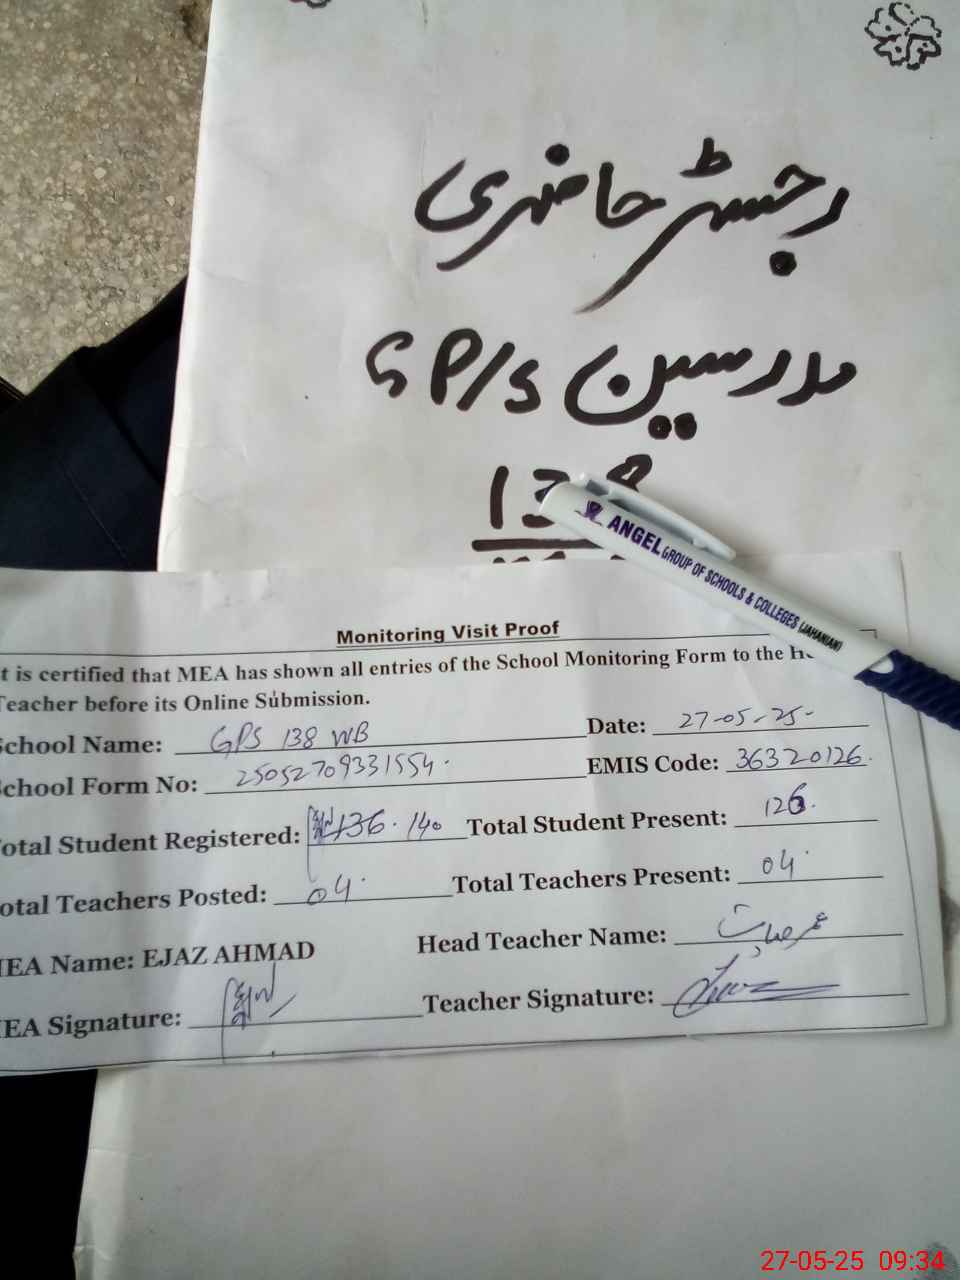 رجسٹر حاضری
مدرسین GP/S
138
ANGEL GROUP OF SCHOOLS & COLLEGES (JAHANIAN)
Monitoring Visit Proof
t is certified that MEA has shown all entries of the School Monitoring Form to the
Teacher before its Online Submission.
School Name: GPS 138 WB Date: 27-05-25-
School Form No: 25052709331554. EMIS Code: 36320126.
Total Student Registered: 136. 140 Total Student Present: 126.
Total Teachers Posted: 04. Total Teachers Present: 04.
MEA Name: EJAZ AHMAD Head Teacher Name:
MEA Signature: Teacher Signature:
27-05-25 09:34